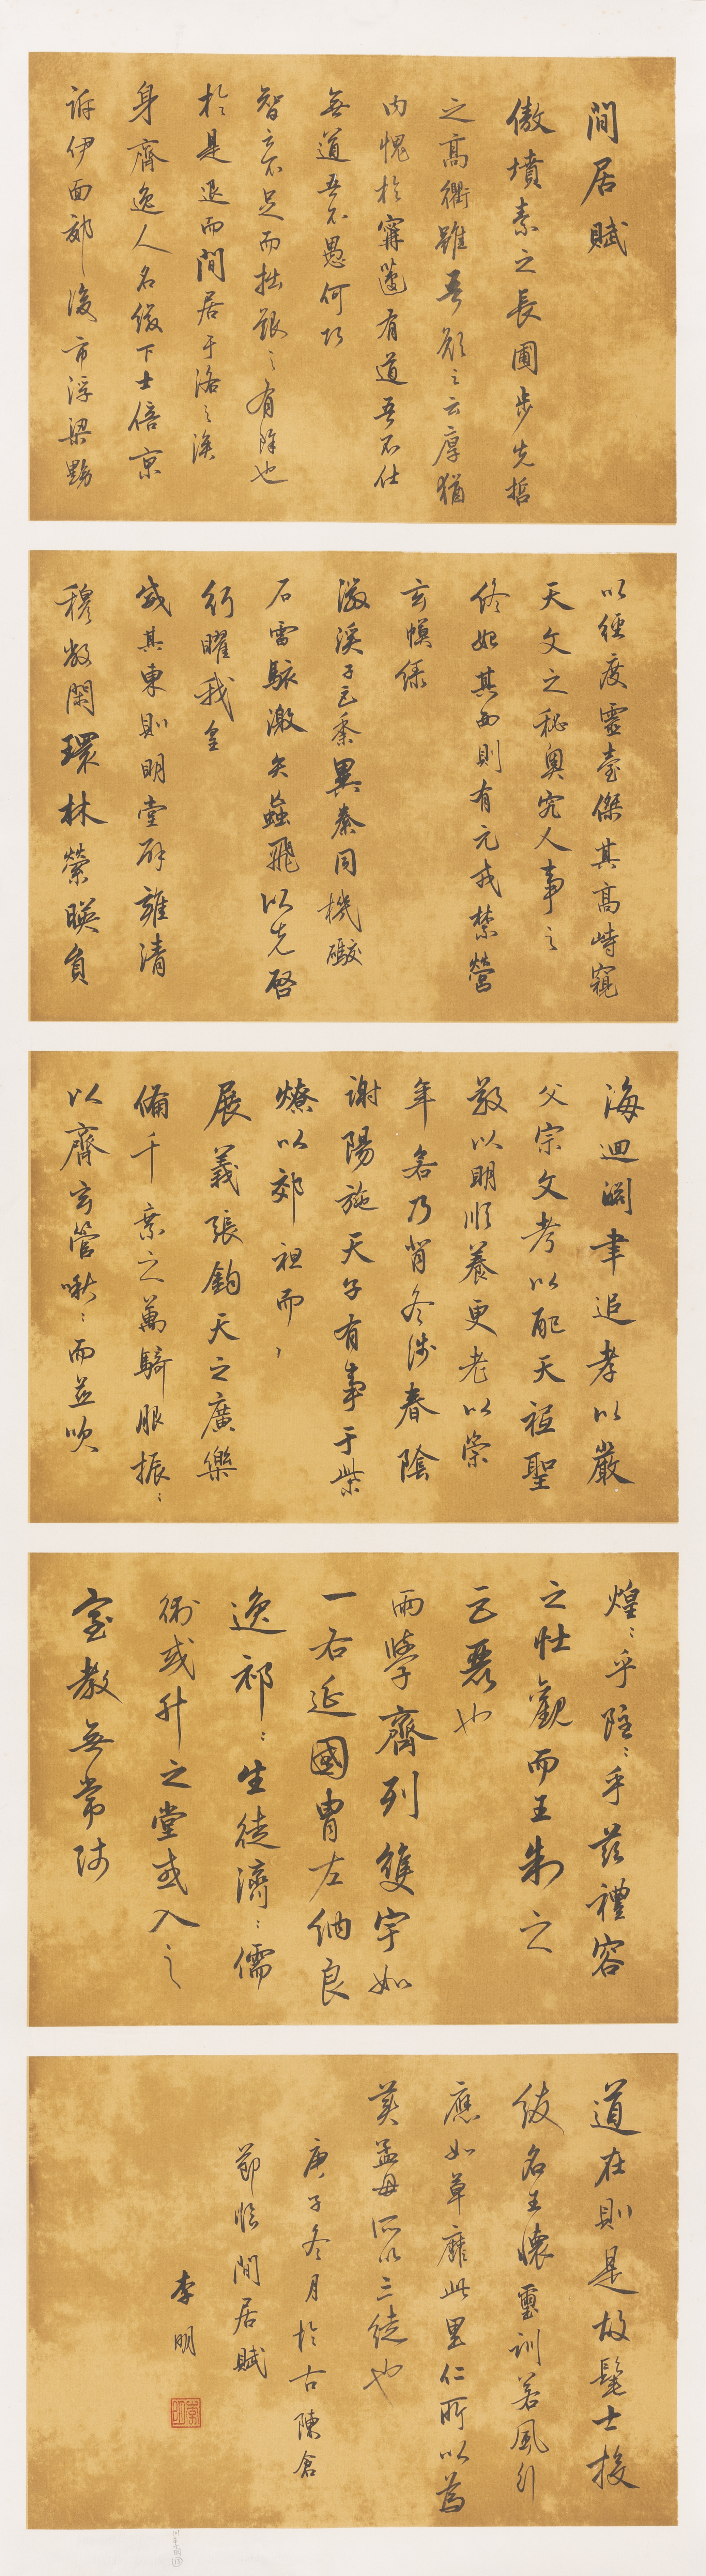 閒居賦
傲墳素之長圃步先哲
之高衢雖吾顏之云厚猶
內愧於甯蘧有道吾不仕
無道吾不愚何巧
智之不足而拙艱之有餘也
於是退而閒居于洛之涘
身齊逸人名綴下士陪京
泝伊面郊後市浮梁黝
以徑度靈臺傑其高峙窺
天文之秘奧究人事之
終始其西則有元戎禁營
玄幙綠
徽溪子巨黍異絭同機礮
石雷駭激矢蝱飛以先啓
行曜我皇
威其東則明堂辟雍清
穆敞閑環林縈暎負
海迴淵聿追孝以嚴
父宗文考以配天祗聖
敬以明順養更老以崇
年若乃背冬涉春陰
謝陽施天子有事于柴
燎以郊祖而
展義張鈞天之廣樂
備千乘之萬騎服振〻
以齊玄管啾〻而並吹
煌〻乎隱〻乎茲禮容
之壯觀而王制之
巨麗也
兩學齊列雙宇如
一右延國胄左納良
逸祁〻生徒濟〻儒
術或升之堂或入之
室教無常師
道在則是故髦士投
紱名王懷璽訓若風行
應如草靡此里仁所以爲
美孟母所以三徙也
庚子冬月於古陳倉
節臨閒居賦
李明